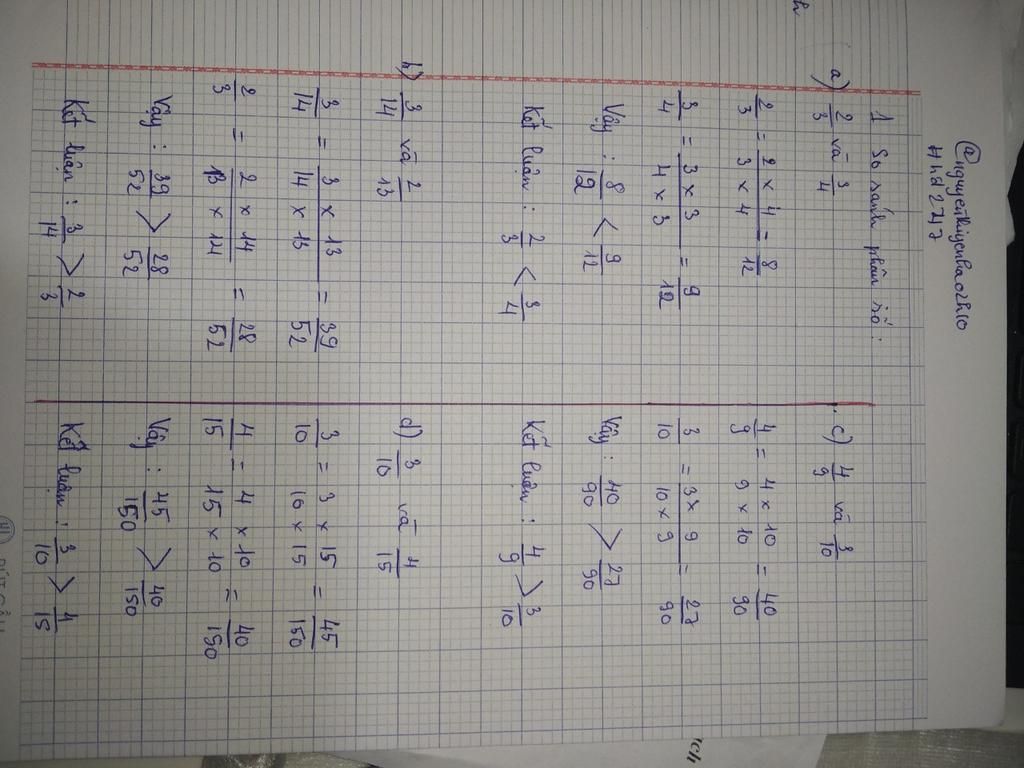 @nguyenthiyenbao2h10
1 So sánh phân số:
a) 2/3 và 3/4
2/3 = 2 × 4 / 3 × 4 = 8/12
3/4 = 3 × 3 / 4 × 3 = 9/12
Vậy : 8/12 < 9/12
Kết luận : 2/3 < 3/4
b) 3/14 và 2/13
3/14 = 3 × 13 / 14 × 13 = 39/52
2/3 = 2 × 14 / 13 × 14 = 28/52
Vậy : 39/52 > 28/52
Kết luận : 3/14 > 2/3
c) 4/9 và 3/10
4/9 = 4 × 10 / 9 × 10 = 40/90
3/10 = 3 × 9 / 10 × 9 = 27/90
Vậy : 40/90 > 27/90
Kết luận : 4/9 > 3/10
d) 3/10 và 4/15
3/10 = 3 × 15 / 10 × 15 = 45/150
4/15 = 4 × 10 / 15 × 10 = 40/150
Vậy : 45/150 > 40/150
Kết luận : 3/10 > 4/15